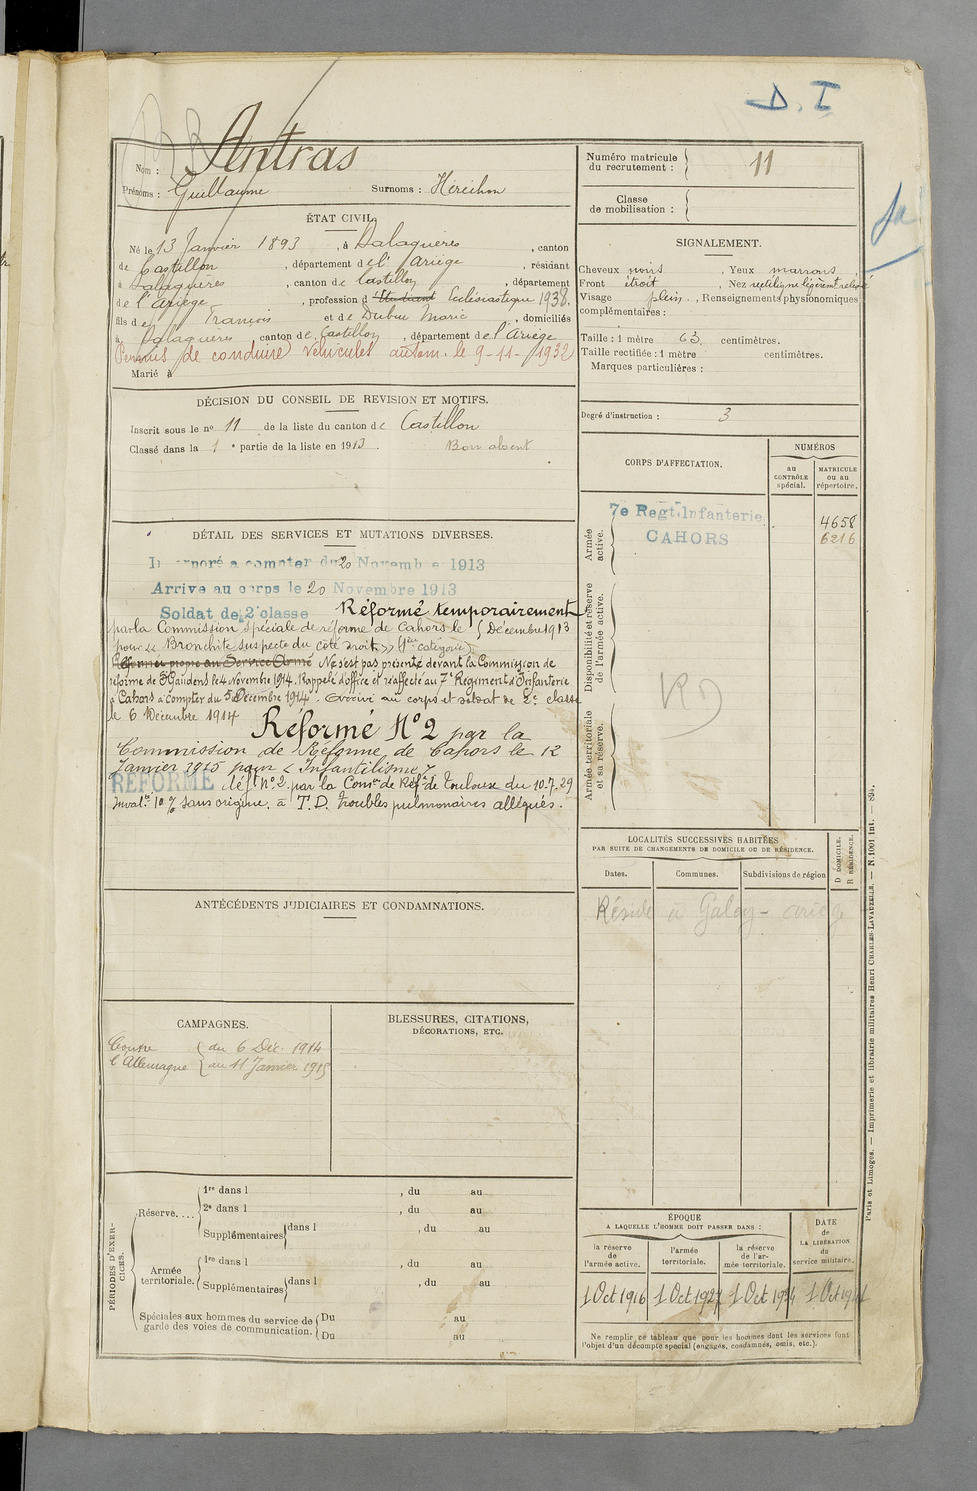 D. I
Antras
Nom :
Prénoms : Guillaume Surnoms :
Numéro matricule
du recrutement : 11
Classe
de mobilisation :
ÉTAT CIVIL.
Né le 13 Janvier 1893, à Balaguères, canton
de Castillon, département de l' Ariège, résidant
à Balaguères, canton de Castillon, département
de l'Ariège, profession d'Etudiant Ecclésiastique 1938.
fils de François et de Dubuc Marie, domiciliés
à Balaguères canton de Castillon, département de l'Ariège
Permis de conduire véhicules autom. le 9-11-1932
Marié à
SIGNALEMENT.
Cheveux noirs, Yeux marrons,
Front étroit, Nez rectiligne légèrement relevé
Visage plein., Renseignements physionomiques
complémentaires :
Taille : 1 mètre 63, centimètres.
Taille rectifiée : 1 mètre centimètres.
Marques particulières :
Degré d'instruction : 3
DÉCISION DU CONSEIL DE REVISION ET MOTIFS.
Inscrit sous le nº 11 de la liste du canton de Castillon
Classé dans la 1e partie de la liste en 1913. Bon absent
CORPS D'AFFECTATION.
NUMÉROS
au
CONTRÔLE
spécial.
MATRICULE
ou au
répertoire.
Armée
active.
7e Regt. Infanterie
CAHORS
4658
6216
Disponibilité et réserve
de l'armée active.
Armée territoriale
et sa réserve.
DÉTAIL DES SERVICES ET MUTATIONS DIVERSES.
Incorporé a compter du 20 Novembre 1913
Arrive au corps le 20 Novembre 1913
Soldat de 2e classe Réformé temporairement
par la Commission spéciale de réforme de Cahors le 5 Décembre 1913
pour « Bronchite suspecte du côté droit » (1ère catégorie).
Réformé propre au Service Armé Ne s'est pas présenté devant la Commission de
réforme de St Gaudens le 4 Novembre 1914. Rappelé d'office et réaffecté au 7e Régiment d'Infanterie
à Cahors à compter du 5 Décembre 1914. Arrivé au corps et soldat de 2e classe
le 6 Décembre 1914
Réformé Nº 2 par la
Commission de Réforme de Cahors le 12
Janvier 1915 pour « Infantilisme »
REFORMÉ déft nº 2 par la Comon de Réf. de Toulouse du 10.7.29
Inval. 10 % sans origine. à T.D. troubles pulmonaires allégués.
LOCALITÉS SUCCESSIVES HABITÉES
PAR SUITE DE CHANGEMENTS DE DOMICILE OU DE RÉSIDENCE.
Dates.
Communes.
Subdivisions de région
D DOMICILE.
R RÉSIDENCE.
Réside à Galey - ariège
ANTÉCÉDENTS JUDICIAIRES ET CONDAMNATIONS.
CAMPAGNES.
Contre du 6 Déc. 1914
l'Allemagne au 11 Janvier 1915
BLESSURES, CITATIONS,
DÉCORATIONS, ETC.
PÉRIODES D'EXER-
CICES.
Réserve....
1re dans l , du au
2e dans l , du au
Supplémentaires dans l , du au
Armée
territoriale.
1re dans l , du au
Supplémentaires dans l , du au
Spéciales aux hommes du service de
garde des voies de communication.
Du au
Du au
ÉPOQUE
A LAQUELLE L'HOMME DOIT PASSER DANS :
la réserve
de
l'armée active.
l'armée
territoriale.
la réserve
de l'ar-
mée territoriale.
DATE
de
LA LIBÉRATION
du
service militaire.
1 Oct 1916 1 Oct 1927 1 Oct 1934 1 Oct 1941
Ne remplir ce tableau que pour les hommes dont les services font
l'objet d'un décompte spécial (engagés, condamnés, omis, etc.).
Paris et Limoges. — Imprimerie et librairie militaires Henri CHARLES-LAVAUZELLE. — N. 1001 int. — 894.